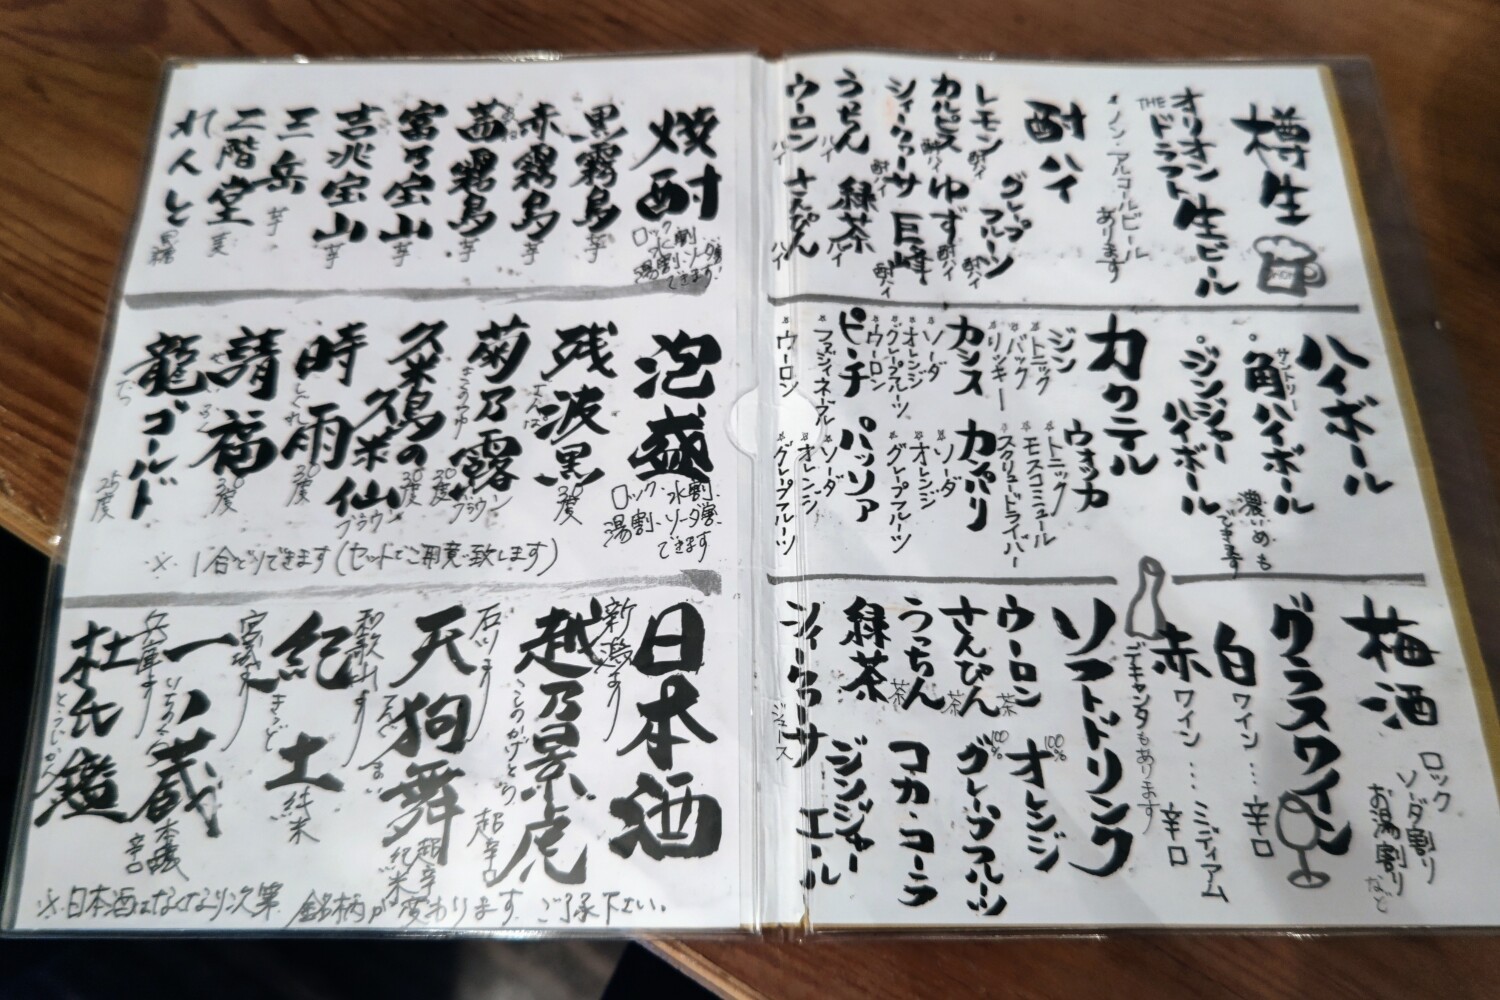 樽生
オリオン生ビール
THEドラフト
ノンアルコールビール
あります
酎ハイ
レモン酎ハイ
グレープフルーツ酎ハイ
カルピス酎ハイ
ゆず酎ハイ
シークワーサー酎ハイ
巨峰酎ハイ
うっちんハイ
緑茶ハイ
ウーロンハイ
さんぴんハイ
ハイボール
サントリー
角ハイボール
濃いめもできます
ジンジャーハイボール
カクテル
ジン
トニック
バック
リッキー
ウォッカ
トニック
モスコミュール
スクリュードライバー
カシス
ソーダ
オレンジ
グレープフルーツ
ウーロン
カンパリ
ソーダ
オレンジ
グレープフルーツ
ピーチ
ファジィネーブル
ウーロン
パッソア
ソーダ
オレンジ
グレープフルーツ
梅酒
ロック
ソーダ割り
お湯割り
など
グラスワイン
白ワイン…辛口
赤ワイン…ミディアム
辛口
デキャンタもあります
ソフトドリンク
ウーロン茶
オレンジ100%
さんぴん茶
グレープフルーツ100%
うっちん茶
コカ・コーラ
緑茶
ジンジャーエール
シークワーサージュース
焼酎
ロック 水割
湯割・ソーダ割
できます
黒霧島 芋
赤霧島 芋
茜霧島 芋
富乃宝山 芋
吉兆宝山 芋
三岳 芋
二階堂 麦
れんと 黒糖
泡盛
ロック・水割
湯割・ソーダ割
できます
残波黒 30度
菊乃露ブラウン 30度
久米島の久米仙ブラウン 30度
時雨 30度
請福 30度
龍ゴールド 25度
※ 1合でもできます(セットでご用意致します)
日本酒
新潟より
越乃景虎
こしのかげとら
超辛口
石川より
天狗舞
てんぐまい
超辛
純米
和歌山より
紀土
きっど
純米
宮城より
一ノ蔵
いちのくら
本醸
辛口
兵庫より
杜氏鑑
とうじかん
※日本酒はなくなり次第 銘柄が変わります。ご了承下さい。